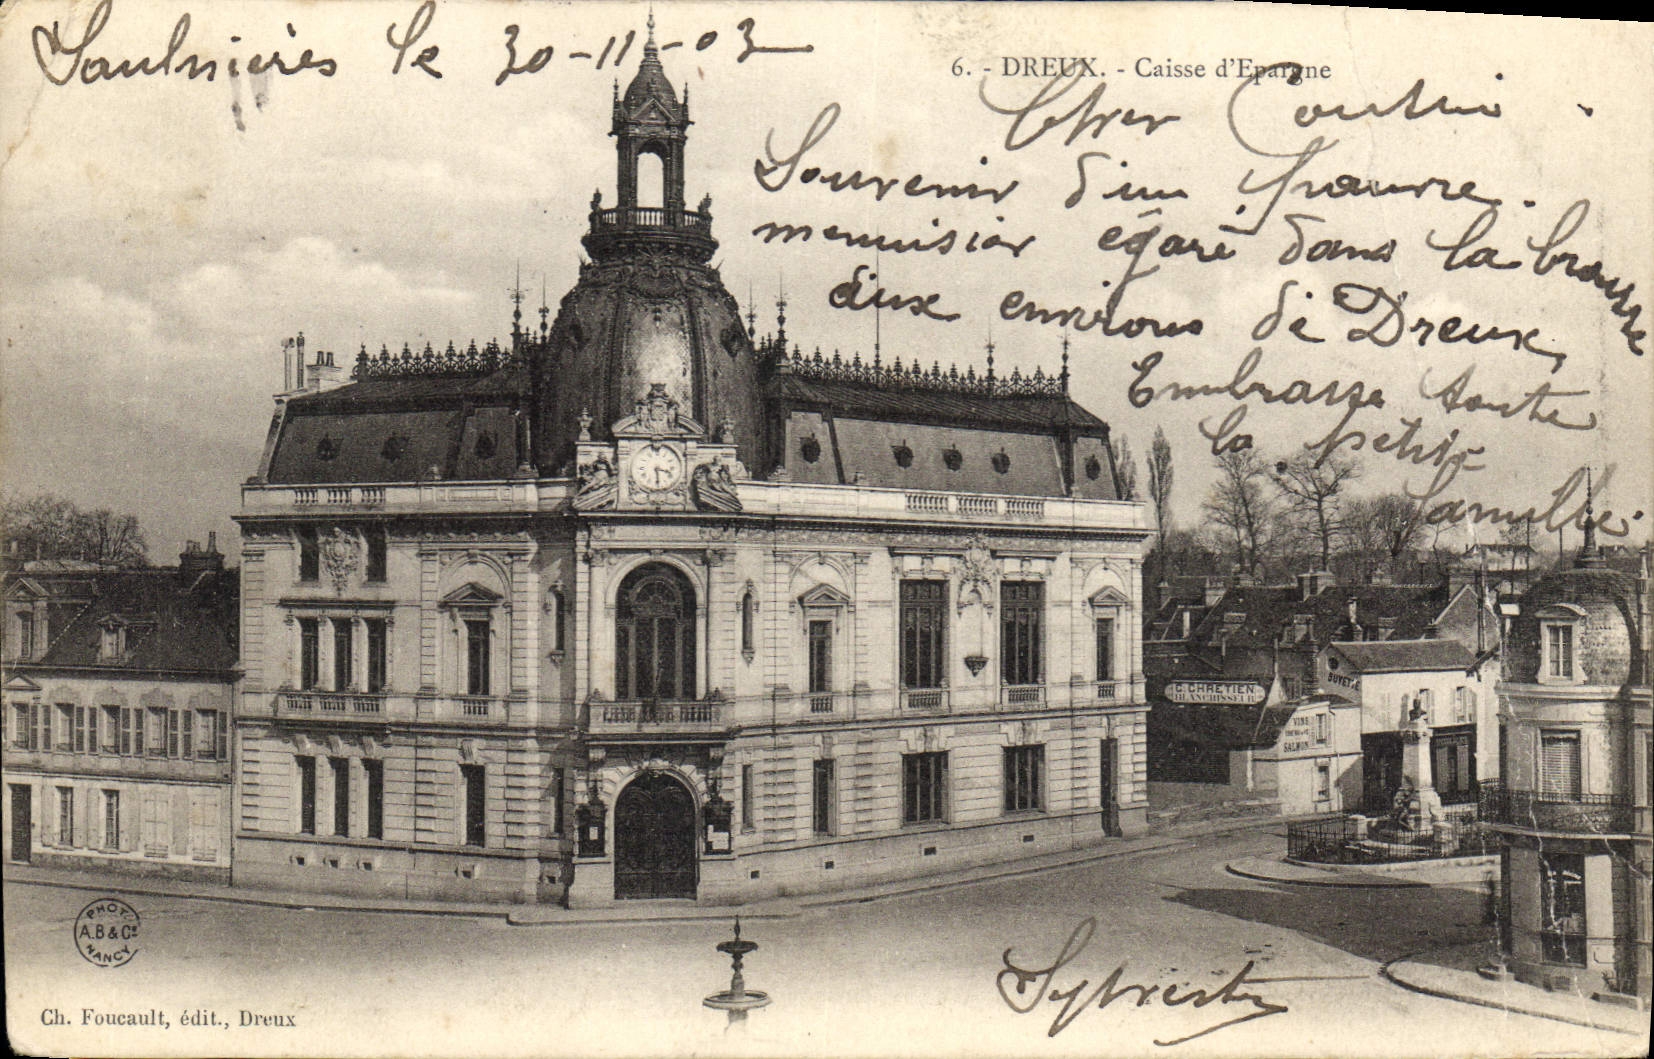 Saulnières le 30-11-03
6. - DREUX. - Caisse d'Epargne
Cher Cousin.
Souvenir d'un pauvre
menuisier égaré dans la brousse
aux environs de Dreux,
Embrasse toute
la petite
famille.
C. CHRÉTIEN
BLANCHISSEUR
BUVETTE
VINS
SALMON
Sylvestre
PHOT.
A.B & Cie
NANCY
Ch. Foucault, édit., Dreux